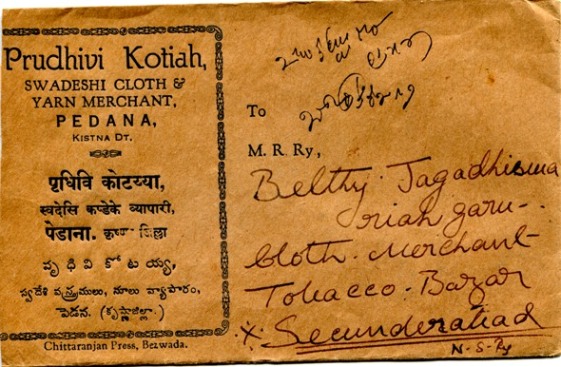 Prudhivi Kotiah,
SWADESHI CLOTH &
YARN MERCHANT,
PEDANA,
KISTNA DT.
पृथिवि कोटय्या,
स्वदेसि कपडेके व्यापारी,
पेडाना. कृष्णा जिल्ला
పృథివి కోటయ్య,
స్వదేశి వస్త్రములు, నూలు వ్యాపారం,
పెడన. (కృష్ణాజిల్లా.)
Chittaranjan Press, Bezwada.
To
M. R. Ry,
Belthy. Jagadhiswa
riah garu-.
Cloth. Merchant
Tobacco. Bazar
x. Secunderabad
N-S-Ry